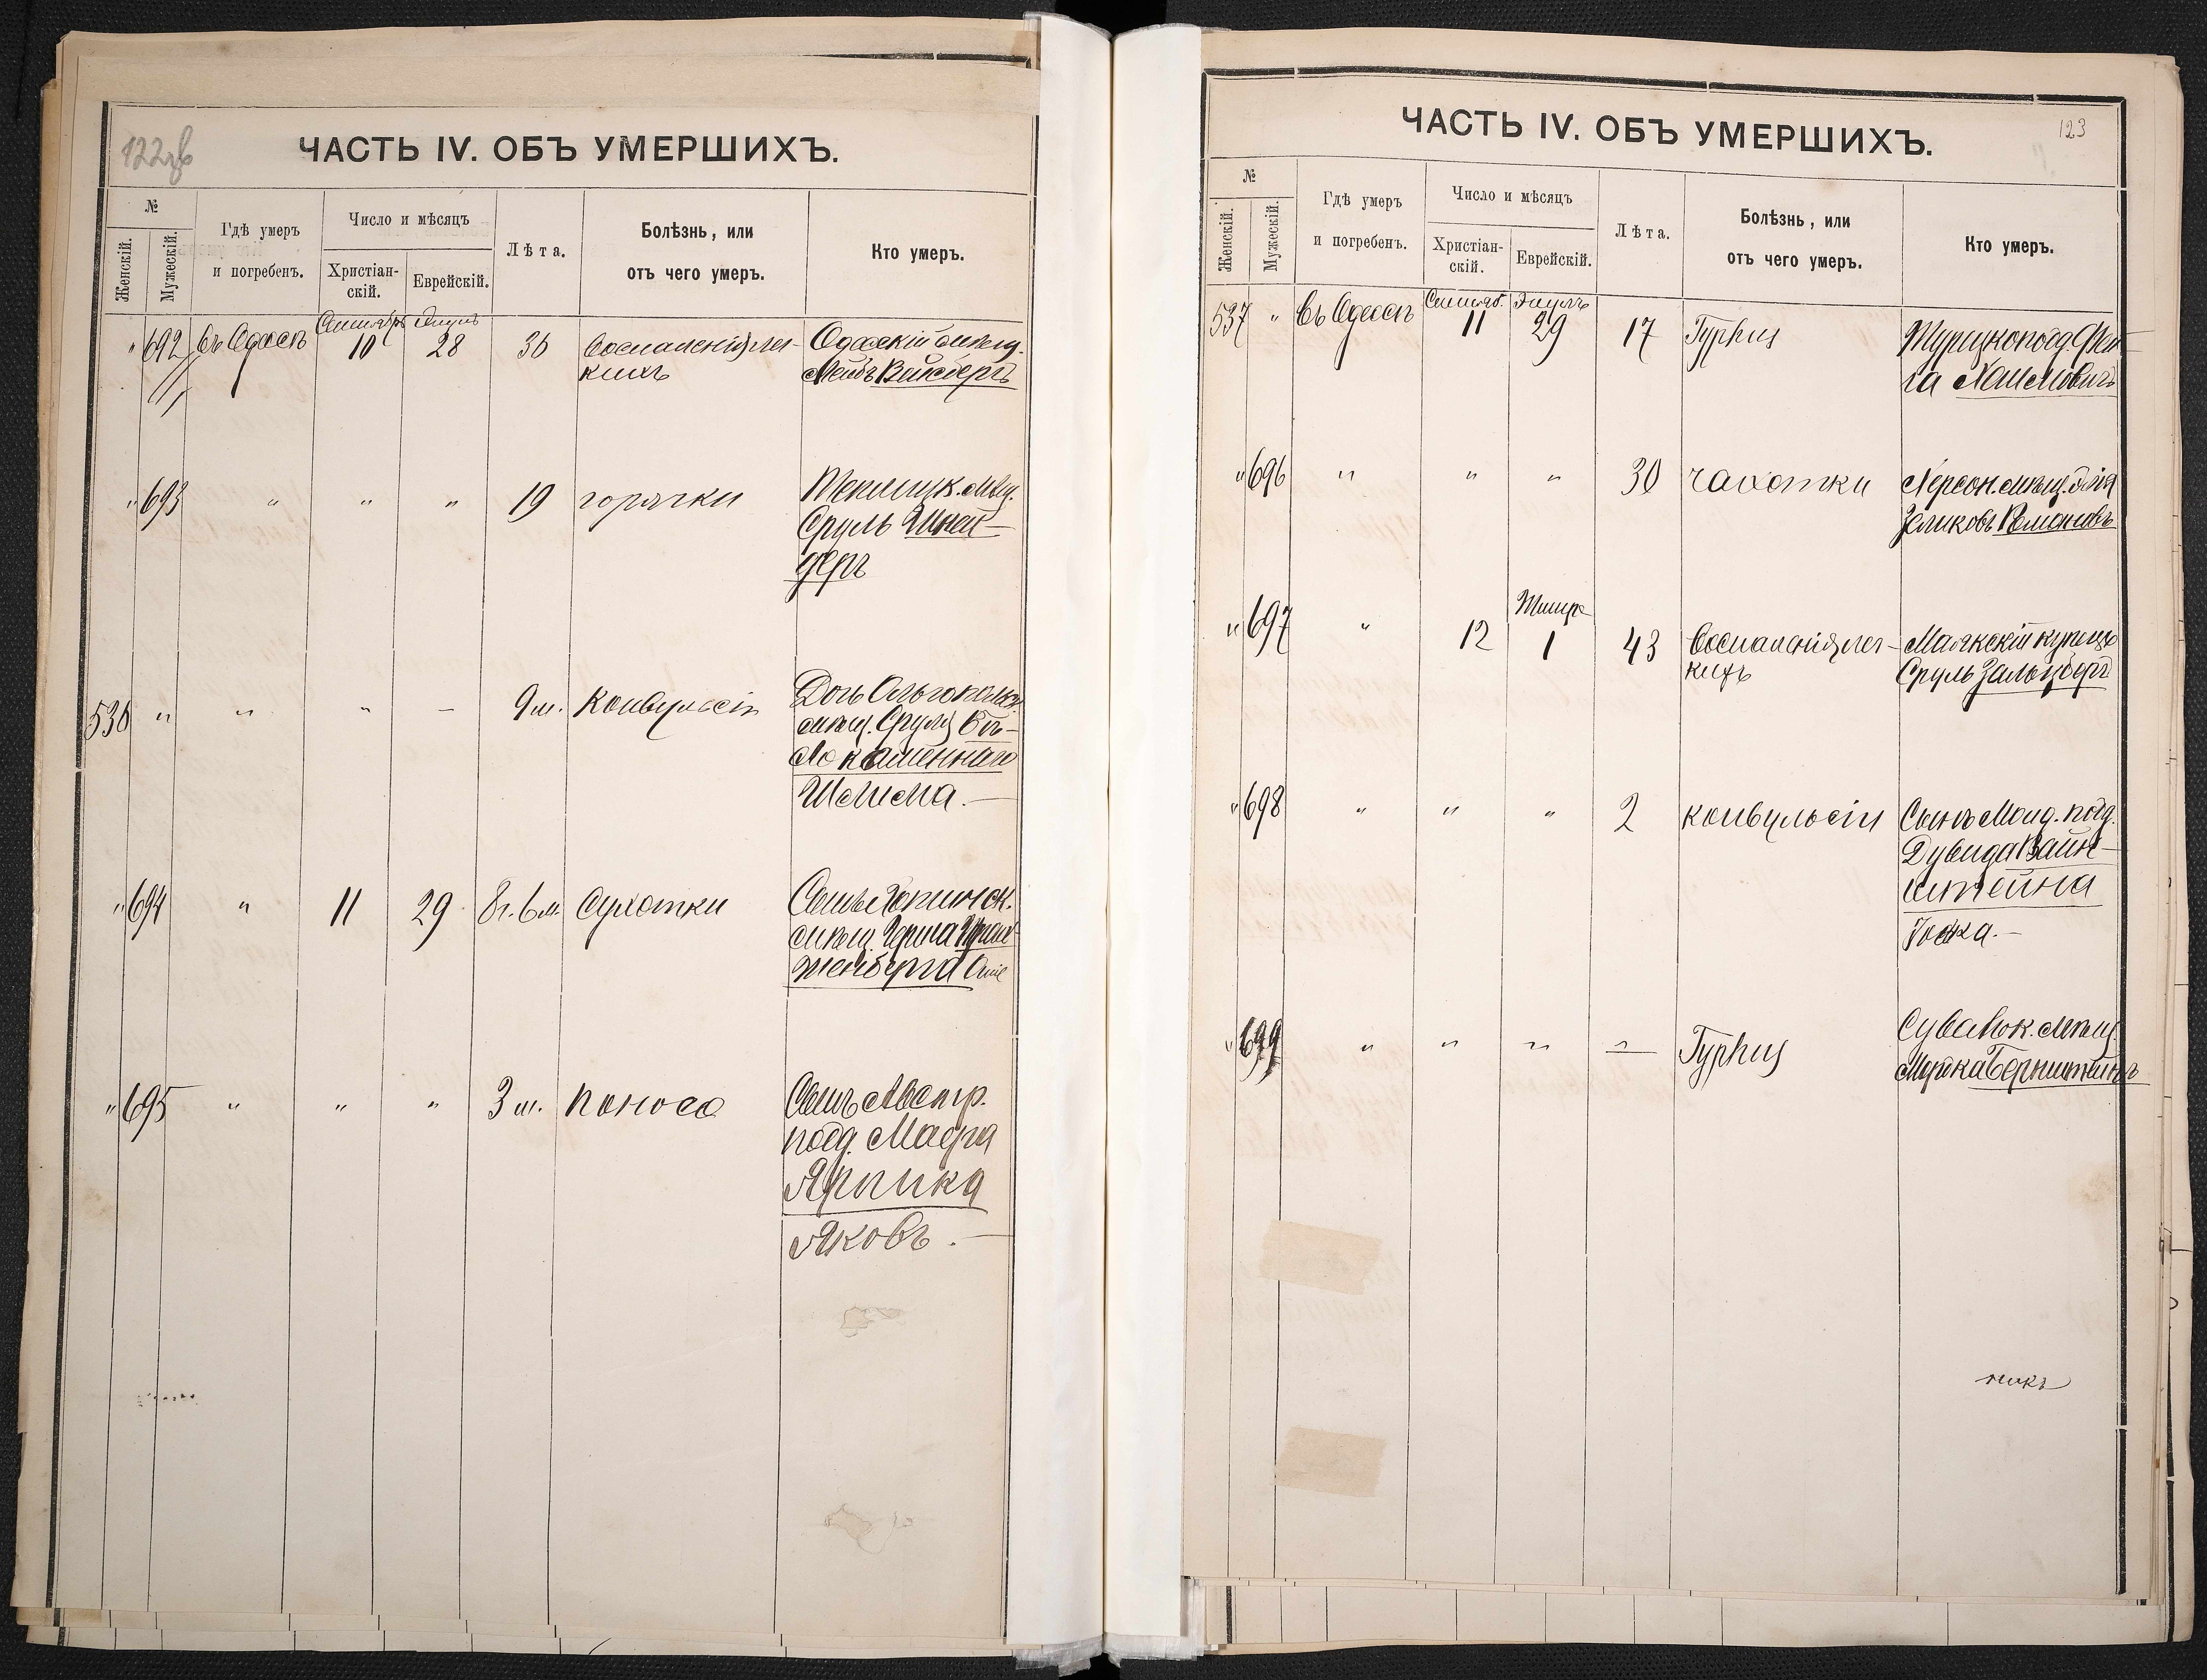 122об
ЧАСТЬ IV. ОБЪ УМЕРШИХЪ.
№
Женскій.
Мужескій.
Гдѣ умеръ
и погребенъ.
Число и мѣсяцъ
Христіан-
скій.
Еврейскій.
Лѣта.
Болѣзнь, или
отъ чего умеръ.
Кто умеръ.
" 692 Въ Одессѣ Сентябрь 10 Элулъ 28 36 Воспаленія лег-
кихъ
Одесскій мѣщ.
Лейбъ Вейсбергъ
" 693 " " " 19 горячки
мѣщ.
Сруль Шней-
деръ
536 " " " – 9 м. Конвульсіи
Дочь Ольгопольск.
мѣщ. Сруля Бѣ-
локаменнаго
694 " 11 29 8 г. 6 м. Сухотки
Сынъ
мѣщ.
женберга
" 695 " " " 3 м. поноса
Сынъ Австр.
подд. Маера
Ярника
Яковъ. –
123
ЧАСТЬ IV. ОБЪ УМЕРШИХЪ.
№
Женскій.
Мужескій.
Гдѣ умеръ
и погребенъ.
Число и мѣсяцъ
Христіан-
скій.
Еврейскій.
Лѣта.
Болѣзнь, или
отъ чего умеръ.
Кто умеръ.
537 " Въ Одессѣ Сентяб. 11 Элулъ 29 17 Typhus
Турецкоподд. Фей-
га Хаимовичъ
" 696 " " " 30 чахотки
Херсон. мѣщ. Элія
Зеликовъ Романовъ
" 697 " 12 Тишре 1 43 Воспаленія лег-
кихъ
Маякскій купецъ
Сруль Зальцбергъ
" 698 " " " 2 конвульсіи
Сынъ Молд. подд.
Дувида Вайн-
штейна
" 699 " " " – Typhus
Сувалк. мѣщ.
Бернштейнъ